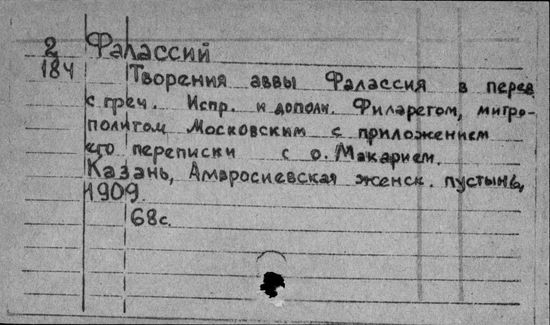 2 Фалассий
184 Творения аввы Фалассия в перев
с греч. Испр. и дополн. Филаретом, митро-
политом Московским с приложением
его переписки с о. Макарием.
Казань, Амвросиевская женск. пустынь,
1909.
68с.